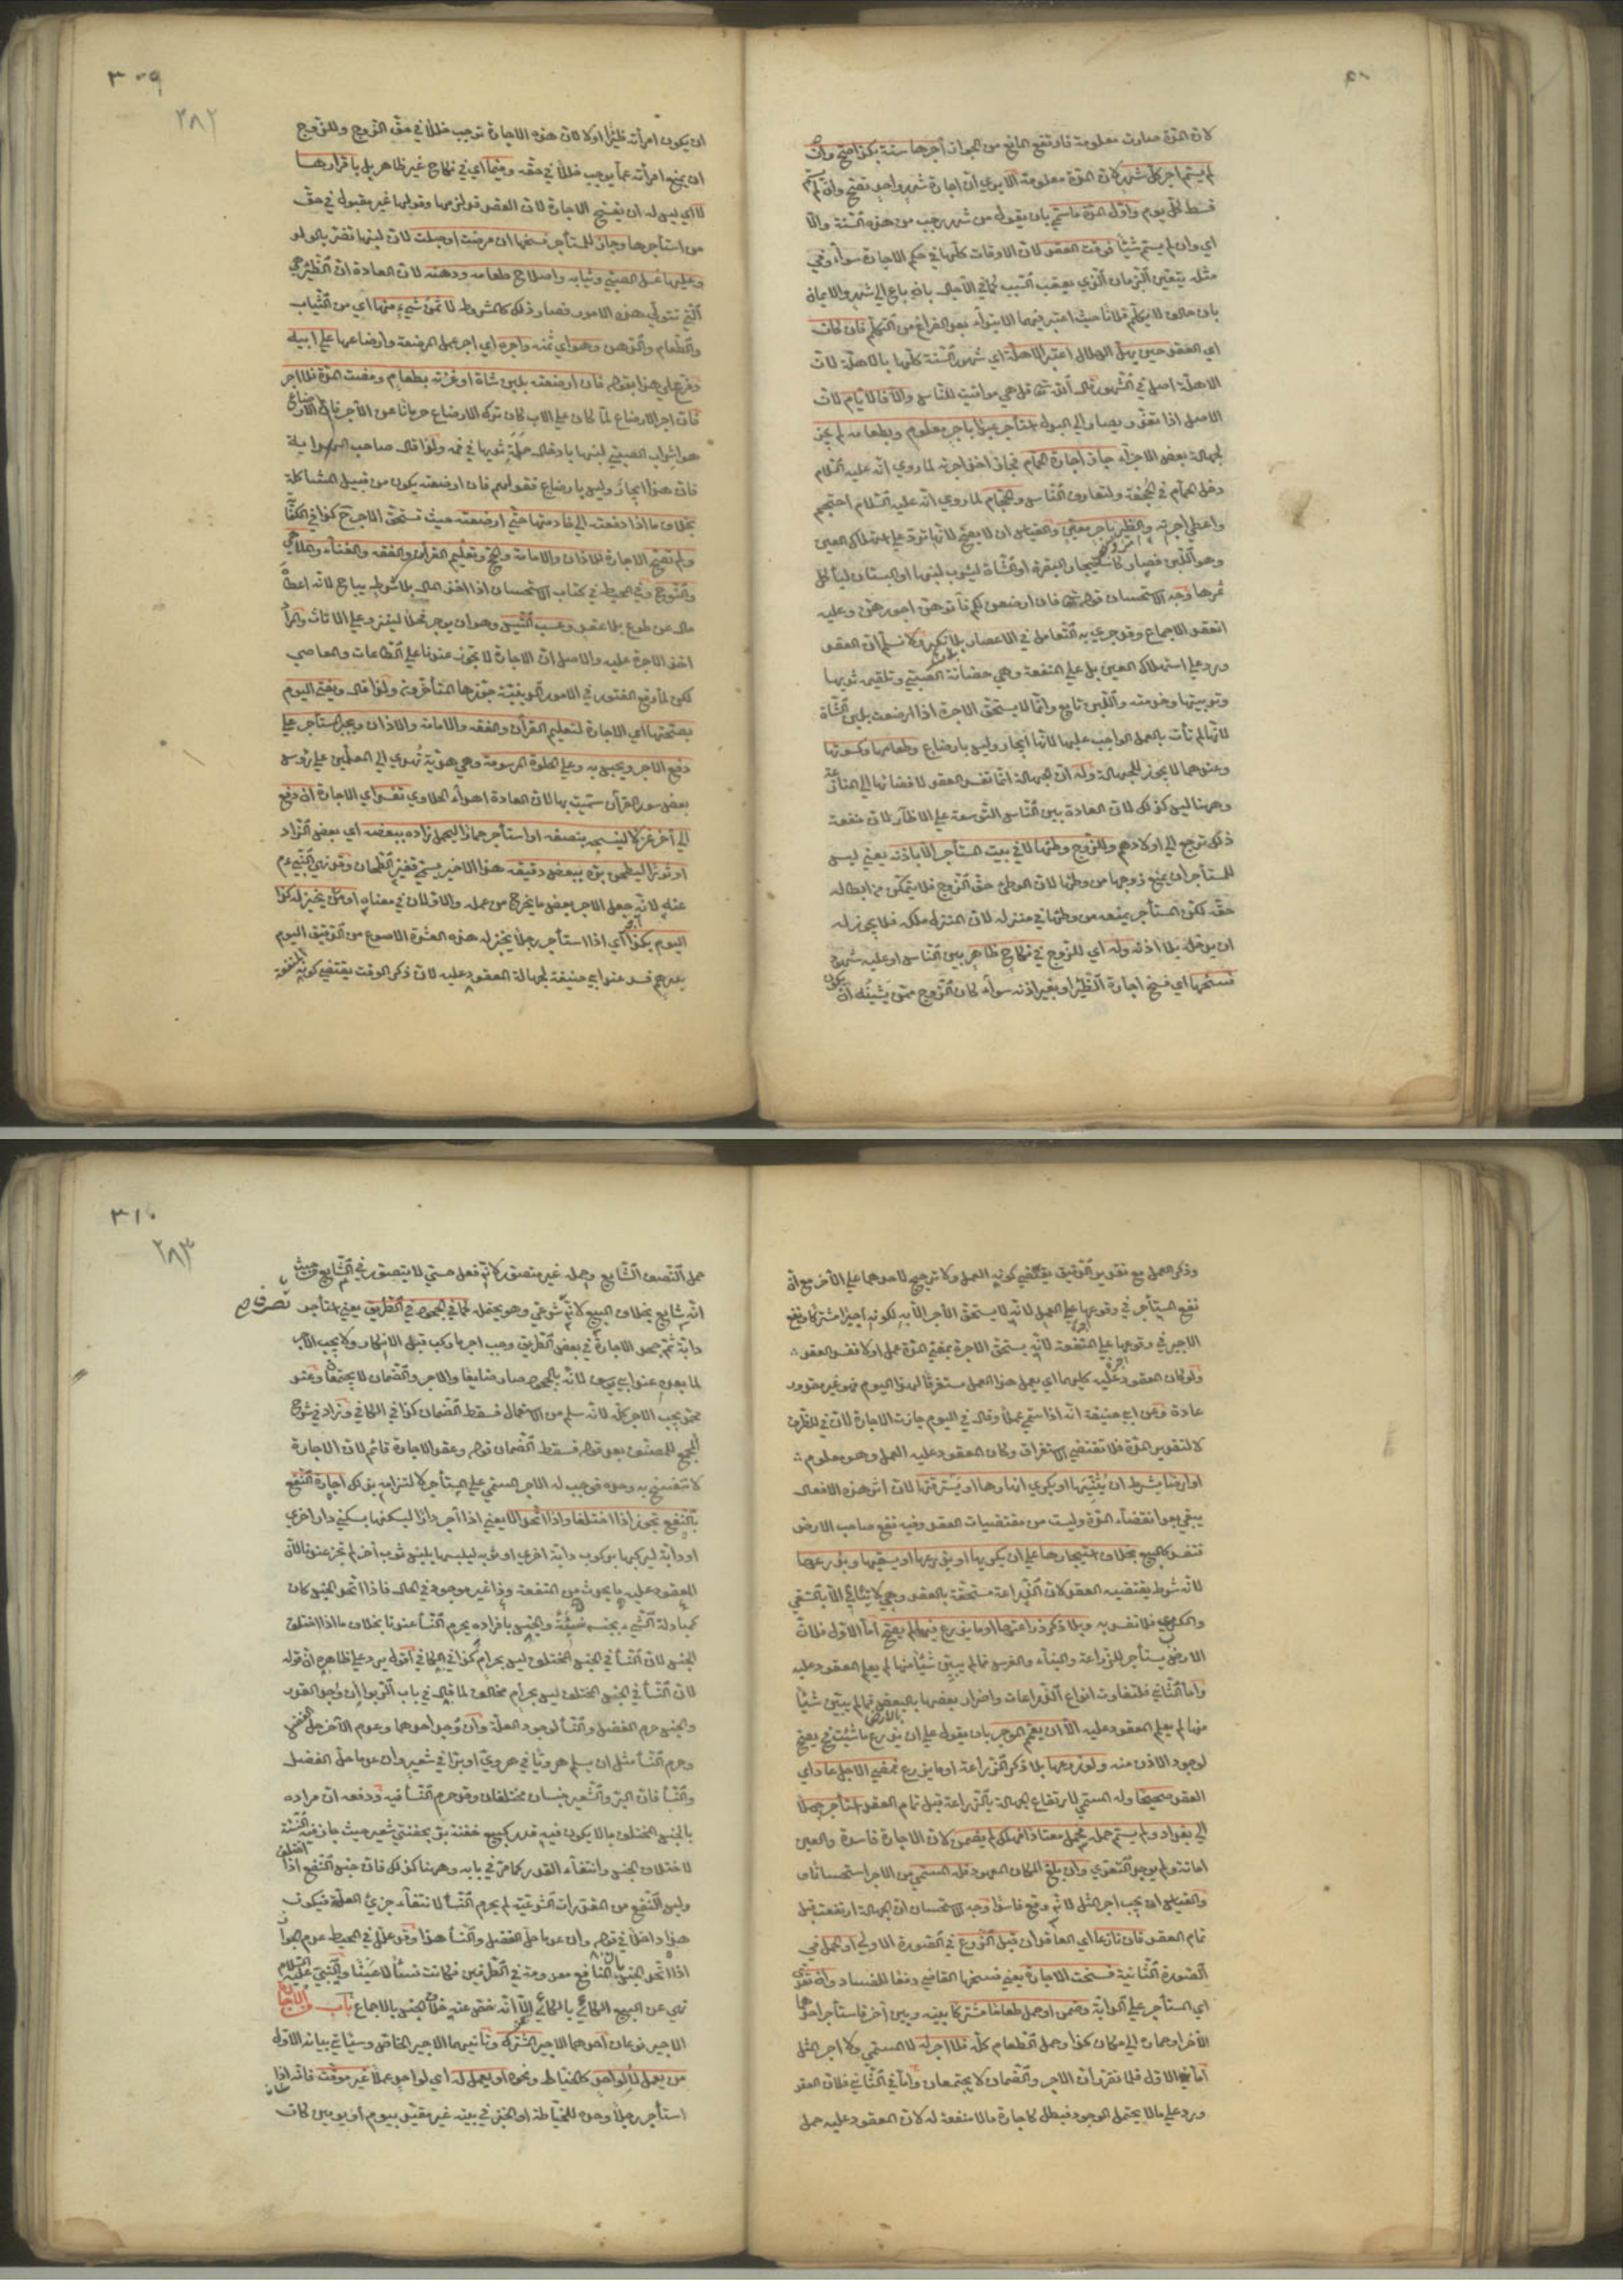 لان المدة صارت معلومة فارتفع المانع من الجواز آجرها سنة بكذا صح وان
لم يسم اجر كل شهر لان المدة معلومة الا يرى ان اجارة شهر واحد تصح وان لم
قسط كل يوم واول المدة ما سمى بان يقول من شهر رجب من هذه السنة والا
اي وان لم يسم شيئا فوقت العقد لان الاوقات كلها في حكم الاجارة سواء وفي
مثله يتعين الزمان الذي يعقب السبب كما في الآجال بان باع الى شهر والايمان
بان حلف لا يكلم فلانا حيث اعتبر فيهما الابتداء بعد الفراغ من التكلم فان كان
اي العقد حين يهل الهلال اعتبر الاهلة اي شهور السنة كلها بالاهلة لان
الاهلة اصل في الشهور قال الله تعالى قل هي مواقيت للناس والا فالايام لان
الاصل اذا تعذر يصار الى البدل استأجر عبدا باجر معلوم وبطعامه لم يجز
لجهالة بعض الاجر جاز اجارة الحمام فجاز اخذ اجرته لما روي انه عليه السلام
دخل الحمام في الجحفة ولتعارف الناس والحجام لما روي انه عليه السلام احتجم
واعطى اجرته والظئر باجر معين والقياس ان لا يصح لانها ترد على استهلاك العين
وهو اللبن فصار كاستيجار البقرة او الشاة ليشرب لبنها او البستان ليأكل
ثمرها وجه الاستحسان قوله تعالى فان ارضعن لكم فآتوهن اجورهن وعليه
انعقد الاجماع وقد جرى به التعامل في الاعصار بلا نكير ولا نسلم ان العقد
ورد على استهلاك العين بل على المنفعة وهي حضانة الصبي وتلقيمه ثديها
وتربيتها وخدمته واللبن تابع وانما لا يستحق الاجرة اذا ارضعت بلبن الشاة
لانها لم تأت بالعمل الواجب عليها لانها ايجار وليس بارضاع وطعامها وكسوتها
وعندهما لا يجوز للجهالة وله ان الجهالة انما تفسد العقد لافضائها الى المنازعة
وههنا ليس كذلك لان العادة بين الناس التوسعة على الاظآر لان منفعة
ذلك ترجع الى اولادهم وللزوج وطئها لا في بيت المستأجر الا باذنه يعني ليس
للمستأجر ان يمنع زوجها من وطئها لان الوطئ حق الزوج فلا يتمكن من ابطاله
حقه لكن المستأجر يمنعه من وطئها في منزله لان المنزل ملكه فلا يجوز له
ان يدخل بلا اذنه وله اي للزوج في نكاح ظاهر بين الناس او عليه شهود
فسخها اي فسخ اجارة الظئر او بغير اذنه سواء كان الزوج ممن يشينه ان يكون
٣٠٩
٢٨٢
ان يكون امرأته ظئرا او لا لان هذه الاجارة توجب خللا في حق الزوج وللزوج
ان يمنع امرأته عما يوجب خللا في حقه وفيما اي في نكاح غير ظاهر بل باقرارهما
لا اي ليس له ان يفسخ الاجارة لان العقد قد لزمها وقولها غير مقبول في حق
من استأجرها وجاز للمستأجر فسخها ان مرضت او حبلت لان لبنها تضر بالولد
وعليها غسل الصبي وثيابه واصلاح طعامه ودهنه لان العادة ان الظئر هي
التي تتولى هذه الامور فصار ذلك كالمشروط لا ثمن شيء منها اي من الثياب
والطعام والدهن وهو اي ثمنه واجره اي اجر عمل المرضعة وارضاعها على ابيه
وفرع على هذا بقوله فان ارضعته بلبن شاة او غذته بطعام ومضت المدة فلا اجر
فان اجر الارضاع لما كان على الاب كان ترك الارضاع حرمانا عن الاجر فان الارضاع
هو اشراب الصبي لبنها بادخال حلمة ثديها في فمه ولذا قال صاحب الهداية
فان هذا ايجار وليس بارضاع فقولهم فان ارضعته يكون من قبيل المشاكلة
بخلاف ما اذا دفعته الى خادمتها حتى ارضعته حيث تستحق الاجرة كذا في الكفاية
ولم تصح الاجارة للاذان والامامة والحج وتعليم القرآن والفقه والغناء والملاهي
والنوح وفي المحيط في كتاب الاستحسان اذا اخذ المال بلا شرط يباح لانه اعطاء
مال عن طوع بلا عقد وعسب التيس وهو ان يوجر فحلا لينزو على الاناث والمراد
اخذ الاجرة عليه والاصل ان الاجارة لا تجوز عندنا على الطاعات والمعاصي
لكن لما وقع الفتور في الامور الدينية جوزها المتأخرون ولذا قال ويفتى اليوم
بصحتها اي الاجارة لتعليم القرآن والفقه والامامة والاذان ويجبر المستأجر على
دفع الاجر ويحبس به وعلى الحلوة المرسومة وهي هدية تهدى الى المعلمين على رؤس
بعض سور القرآن سميت بها لان العادة اهداء الحلاوي تفسد اي الاجارة ان دفع
الى آخر غزلا لينسجه بنصفه او استأجر حمارا ليحمل زاده ببعضه اي بعض الزاد
او ثورا ليطحن بره ببعض دقيقه هذا الاخير يسمى قفيز الطحان وقد نهى النبي ءم
عنه لانه جعل الاجر بعض ما يخرج من عمله والاولان في معناه او من يخبز له كذا
اليوم بكذا اي اذا استأجر رجلا يخبز له هذه العشرة الاصوع من الدقيق اليوم
بدرهم فسد عند ابي حنيفة لجهالة المعقود عليه لان ذكر الوقت يقتضي كونه المنفعة
وذكر العمل مع تقدير الدقيق يقتضي كونه العمل ولا ترجيح لاحدهما على الآخر مع ان
نفع المستأجر في وقوعها على العمل لانه لا يستحق الاجر الا به لكونه اجيرا مشتركا ونفع
الاجير في وقوعها على المنفعة لانه يستحق الاجرة بمضي المدة عمل او لا نفسد العقد
ولو كان المعقود عليه كليهما اي يعمل هذا العمل مستغرقا لهذا اليوم فهو غير مقدور
عادة وعن ابي حنيفة انه اذا سمى عملا وقال في اليوم جازت الاجارة لان في للظرف
لا لتقدير المدة فلا تقتضي الاستغراق وكان المعقود عليه العمل وهو معلوم
او ارضا بشرط ان يثنيها او يكري انهارها او يسرقنها لان اثر هذه الافعال
يبقى بعد انقضاء المدة وليست من مقتضيات العقد وفيه نفع صاحب الارض
فتفسد كالبيع بخلاف استيجارها على ان يكربها او يزرعها او يسقيها ويزرعها
لانه شرط يقتضيه العقد لان الزراعة مستحقة بالعقد وهي لا يتأتى الا بالسقي
والكرب فلا تفسد به وبلا ذكر زراعتها او ما يزرع فيها لم يصح اما الاول فلان
الارض يستأجر للزراعة والبناء والغرس فما لم يبين شيئا منها لم يعلم المعقود عليه
واما الثاني فلتفاوت انواع الزراعات واضرار بعضها بالارض فما لم يبين شيئا
منها لم يعلم المعقود عليه الا ان يعمم الموجر بان يقول على ان يزرع ما شئت فح يصح
لوجود الاذن منه ولو زرعها بلا ذكر الزراعة او ما يزرع فمضى الاجل عاد اي
العقد صحيحا وله المسمى لارتفاع الجهالة بالزراعة قبل تمام العقد استأجر جملا
الى بغداد ولم يسم حمله فحمل معتادا فهلك لم يضمن لان الاجارة فاسدة والعين
امانة ولم يوجد التعدي وان بلغ المكان المعهود فله المسمى من الاجر استحسانا
والقياس ان يجب اجر المثل لانه وقع فاسدا وجه الاستحسان ان الجهالة ارتفعت قبل
تمام العقد فان تنازعا اي العاقدان قبل الزرع في الصورة الاولى او الحمل في
الصورة الثانية فسخت الاجارة يعني فسخها القاضي دفعا للفساد وان تعدى
اي المستأجر على الدابة وضمن او حمل طعاما مشتركا بينه وبين آخر فاستأجر احدهما
الآخر او حماره الى مكان كذا وحمل الطعام كله فلا اجر له لا المسمى ولا اجر المثل
اما في الاول فلما تقرر ان الاجر والضمان لا يجتمعان واما في الثاني فلان العقد
ورد على ما لا يحتمل الوجود فبطل كاجارة ما لا منفعة له لان المعقود عليه حمل
٣١٠
٢٨٣
حمل النصف الشايع وحمله غير متصور لانه فعل حسي لا يتصور في الشايع حيث
انه شايع بخلاف البيع لانه شرعي وهو يحتمله كما في الجحود في الطريق يعني استأجر
تصرف
دابة ثم جحد الاجارة في بعض الطريق وجب اجر ما ركب قبل الانكار ولا يجب الاجر
لما بعده عند ابي يوسف لانه بالجحود صار ضامنا والاجر والضمان لا يجتمعان وعند
محمد يجب الاجر كله لانه سلم من الاستعمال فسقط الضمان كذا في الكافي وزاد في شرح
المجمع للمصنف بعد قوله فسقط الضمان قوله وعقد الاجارة قائم لان الاجارة
لا تنفسخ به وحده فوجب له الاجر المسمى على المستأجر لالتزامه بذلك اجارة النفع
بالنفع تجوز اذا اختلفا واذا اتحدا لا يعني اذا آجر دارا ليسكنها بسكنى دار اخرى
او دابة ليركبها بركوب دابة اخرى او ثوبه ليلبسها بلبس ثوب آخر لم تجز عندنا لان
المعقود عليه ما يحدث من المنفعة وذا غير موجود في الحال فاذا اتحد الجنس كان
كمبادلة الشيء بجنسه نسيئة والجنس بانفراده يحرم النسأ عندنا بخلاف ما اذا اختلف
الجنس لان النسأ في الجنس المختلف ليس بحرام كذا في الكافي اقول يرد على ظاهره ان قوله
لان النسأ في الجنس المختلف ليس بحرام مخالف لما قال في باب الربوا ان وجد القدر
والجنس حرم الفضل والنسأ لوجود العلة وان وجد احدهما وعدم الآخر حل الفضل
وحرم النسأ مثل ان يسلم هرويا في هروي او برا في شعير وان عدما حل الفضل
والنسأ فان البر والشعير جنسان مختلفان وقد حرم النسأ فيه ودفعه ان مراده
بالجنس المختلف ما لا يكون فيه قدر كبيع حفنة بر بحفنتي شعير حيث جاز فيه النسيئة
لاختلاف الجنس وانتفاء القدر كما مر في بابه وههنا كذلك فان جنس النفع اذا اختلف
وليس النفع من المقدرات الشرعية لم يحرم النسأ لانتفاء جزئي العلة فيكون
هذا داخلا في قولهم وان عدما حل الفضل والنسأ هذا وقد علل في المحيط عدم الجواز
اذا اتحد الجنس بان المنافع معدومة في الطرفين فكانت نسأ بنسأ والنبي عليه السلام
نهى عن البيع الكالئ بالكالئ الا انه خص عنه خلاف الجنس بالاجماع باب من الاجارة
الاجير نوعان احدهما الاجير المشترك وثانيهما الاجير الخاص وسيأتي بيانه الاول
من يعمل لا لواحد كالخياط ونحوه او يعمل له اي لواحد عملا غير موقت فانه اذا
استأجر رجلا وحده للخياطة او الخبز في بيته غير مقيد بيوم او يومين كان